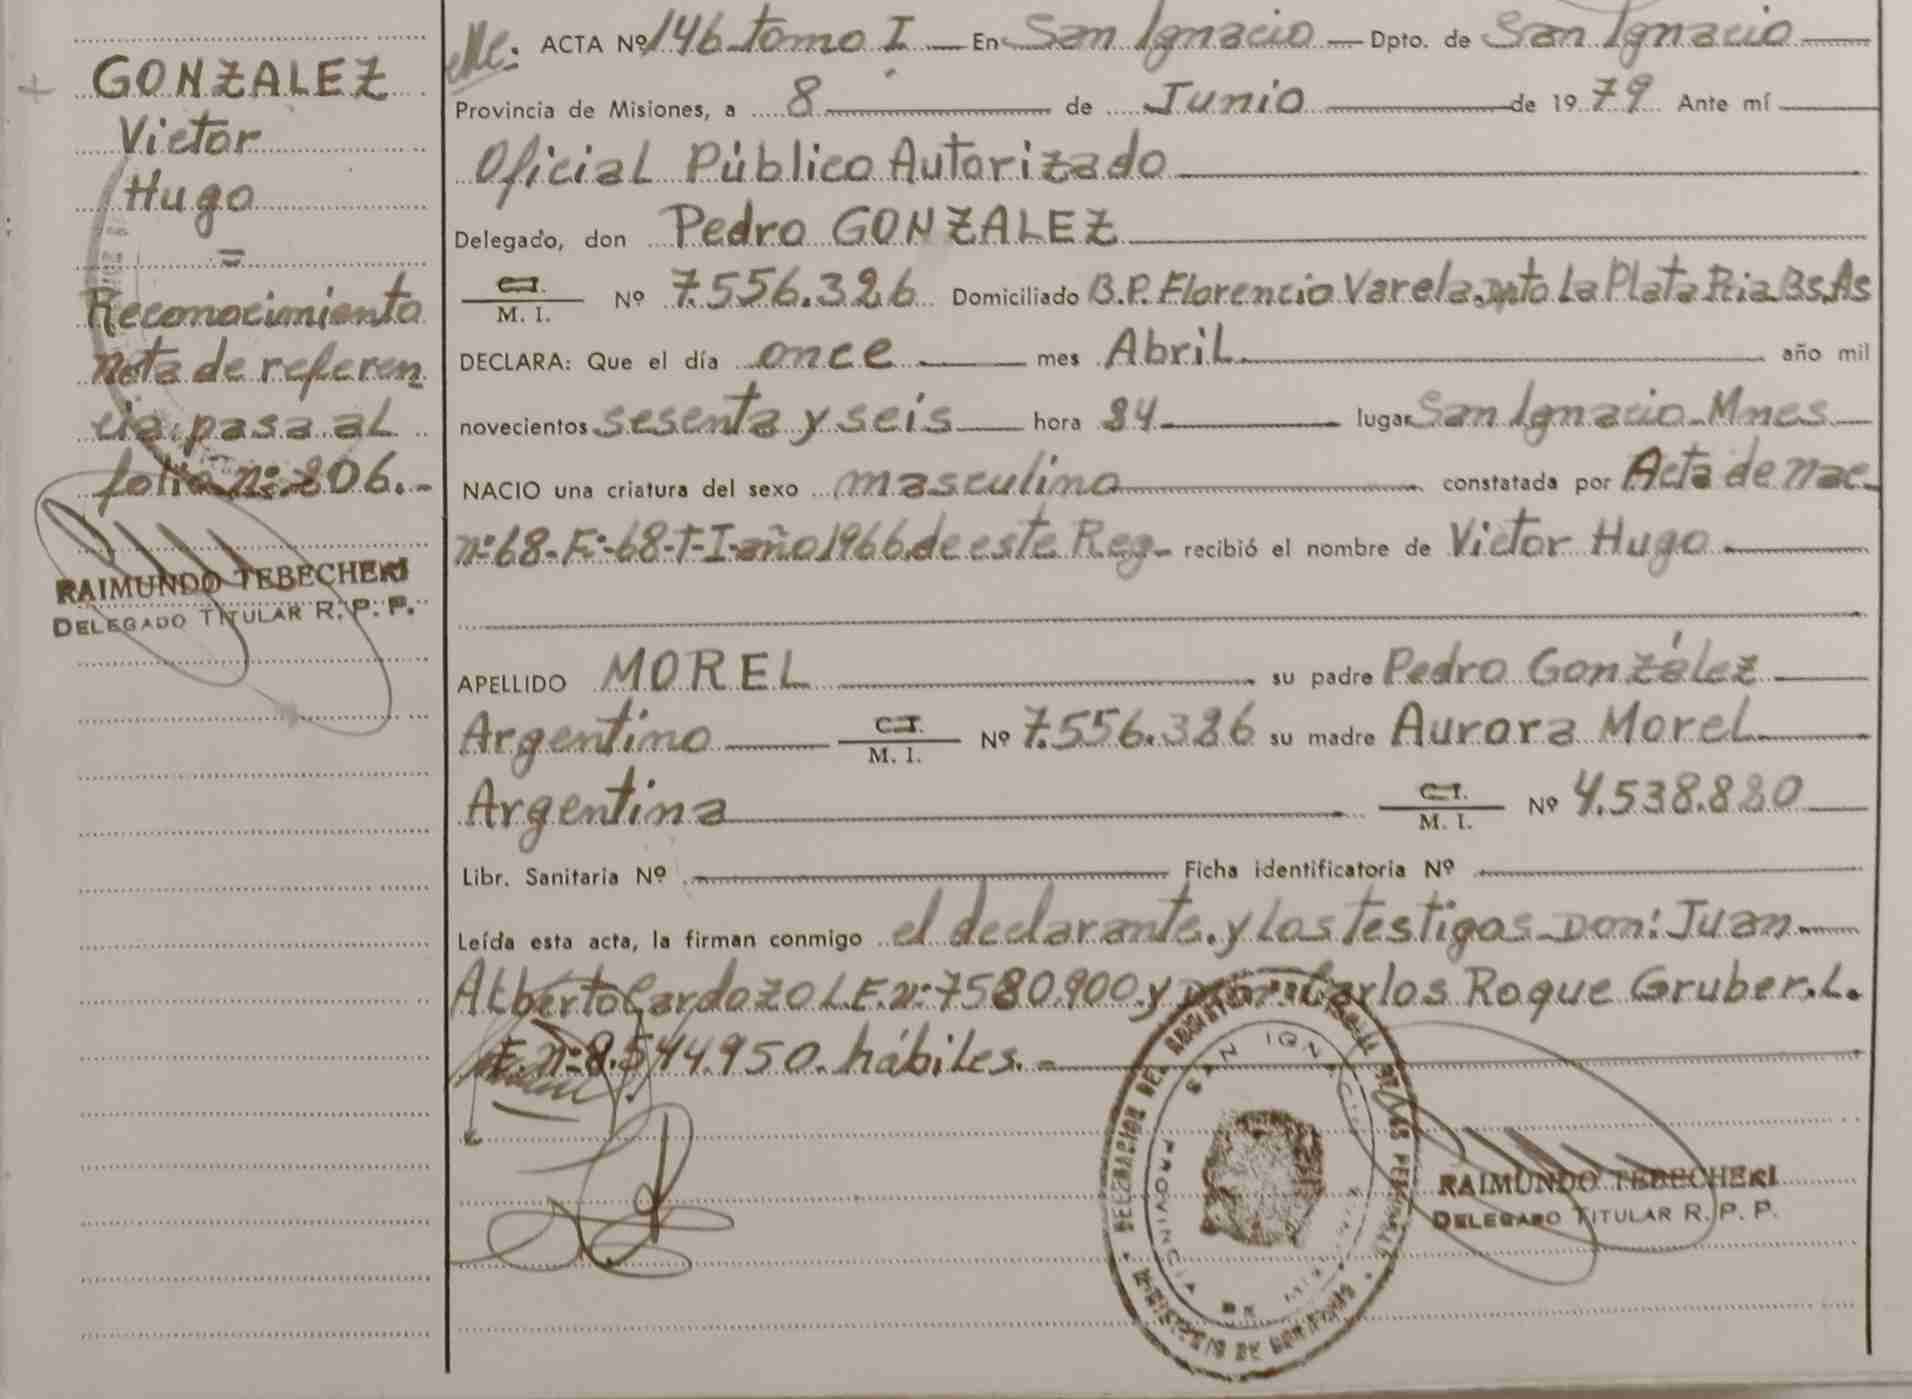 GONZALEZ
Victor
Hugo
=
Reconocimiento
nota de referen
cia pasa al
folio nº 206.-
RAIMUNDO TEBECHERI
DELEGADO TITULAR R. P. P.
ACTA Nº 146 tomo I En San Ignacio Dpto. de San Ignacio
Provincia de Misiones, a 8 de Junio de 1979 Ante mí
Oficial Público Autorizado
Delegado, don Pedro GONZALEZ
C.I.
M. I.
Nº 7.556.326 Domiciliado B.P. Florencio Varela, Dpto La Plata Pcia Bs.As
DECLARA: Que el día once mes Abril año mil
novecientos sesenta y seis hora 24 lugar San Ignacio-Mnes
NACIO una criatura del sexo masculino constatada por Acta de nac
nº 68-Fº-68-T-I-año 1966 de este Reg- recibió el nombre de Victor Hugo
APELLIDO MOREL su padre Pedro González
Argentino C.I. M. I. Nº 7.556.326 su madre Aurora Morel
Argentina C.I. M. I. Nº 4.538.880
Libr. Sanitaria Nº Ficha identificatoria Nº
Leída esta acta, la firman conmigo el declarante. y los testigos Don: Juan
Alberto Cardozo L.E. nº 7580.900 y Don: Carlos Roque Gruber. L.
E. nº 8.544.950. hábiles.-
SAN IGNACIO
PROVINCIA DE MISIONES
RAIMUNDO TEBECHERI
DELEGADO TITULAR R. P. P.